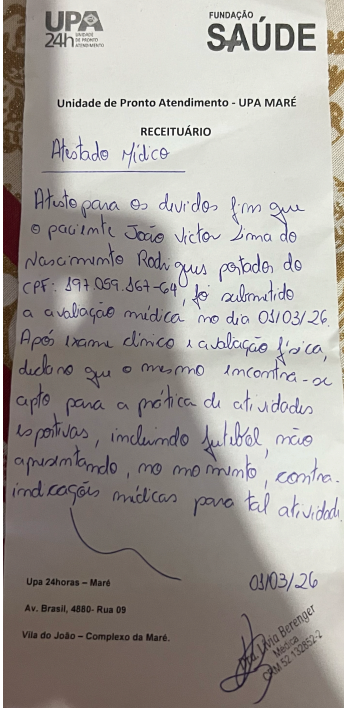 UPA
24h UNIDADE DE PRONTO ATENDIMENTO
FUNDAÇÃO
SAÚDE
Unidade de Pronto Atendimento - UPA MARÉ
RECEITUÁRIO
Atestado Médico
Atesto para os devidos fins que
o paciente João Victor Lima do
Nascimento Rodrigues portador do
CPF: 197.059.167-64, foi submetido
a avaliação médica no dia 01/03/26.
Após exame clínico e avaliação física,
declaro que o mesmo encontra-se
apto para a prática de atividades
esportivas, incluindo futebol, não
apresentando, no momento, contra-
indicações médicas para tal atividade.
01/03/26
Upa 24horas – Maré
Av. Brasil, 4880- Rua 09
Vila do João – Complexo da Maré.
Dra. Livia Berenger
Médica
CRM 52.132652-2